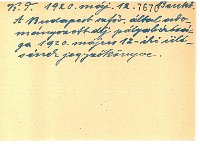 K. T. 1920. máj. 12. 7670 Bankb.
A Budapest szfőv. által ado-
mányozott díj pályabírósá-
ga 1920. május 12-iki ülé-
sének jegyzőkönyve.